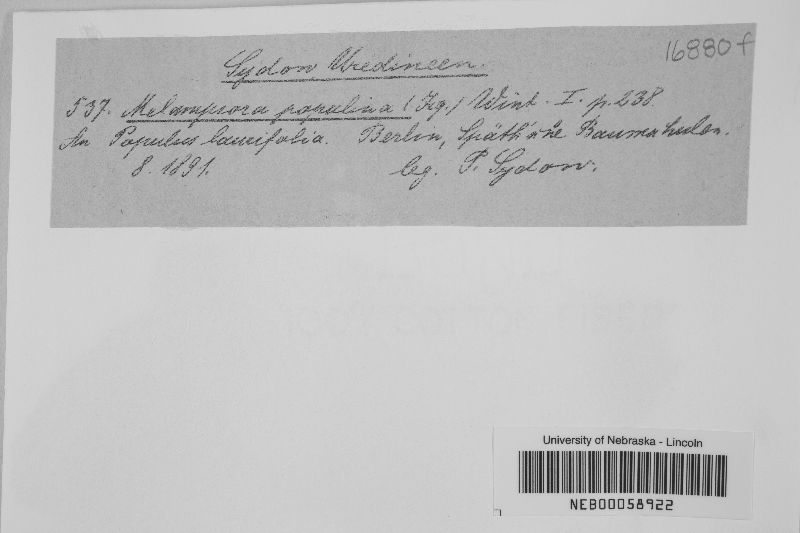 16880 f
Sydow Uredineen.
537. Melampsora populina (Jcq.) Wint. I. p. 238.
An Populus laurifolia. Berlin, Späth'sche Baumschulen.
8. 1891. leg. P. Sydow.
University of Nebraska - Lincoln
NEB00058922